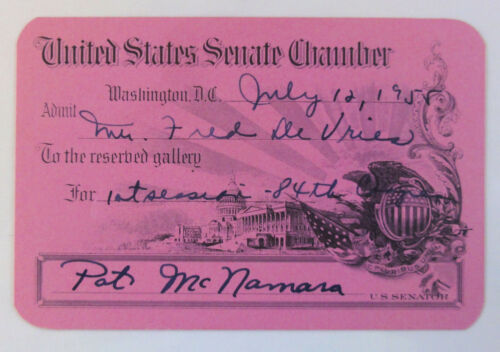 United States Senate Chamber
Washington, D.C. July 12, 1955
Admit Mr. Fred De Vries
To the reserved gallery
For 1st session - 84th Congress
Pat McNamara
U.S. SENATOR